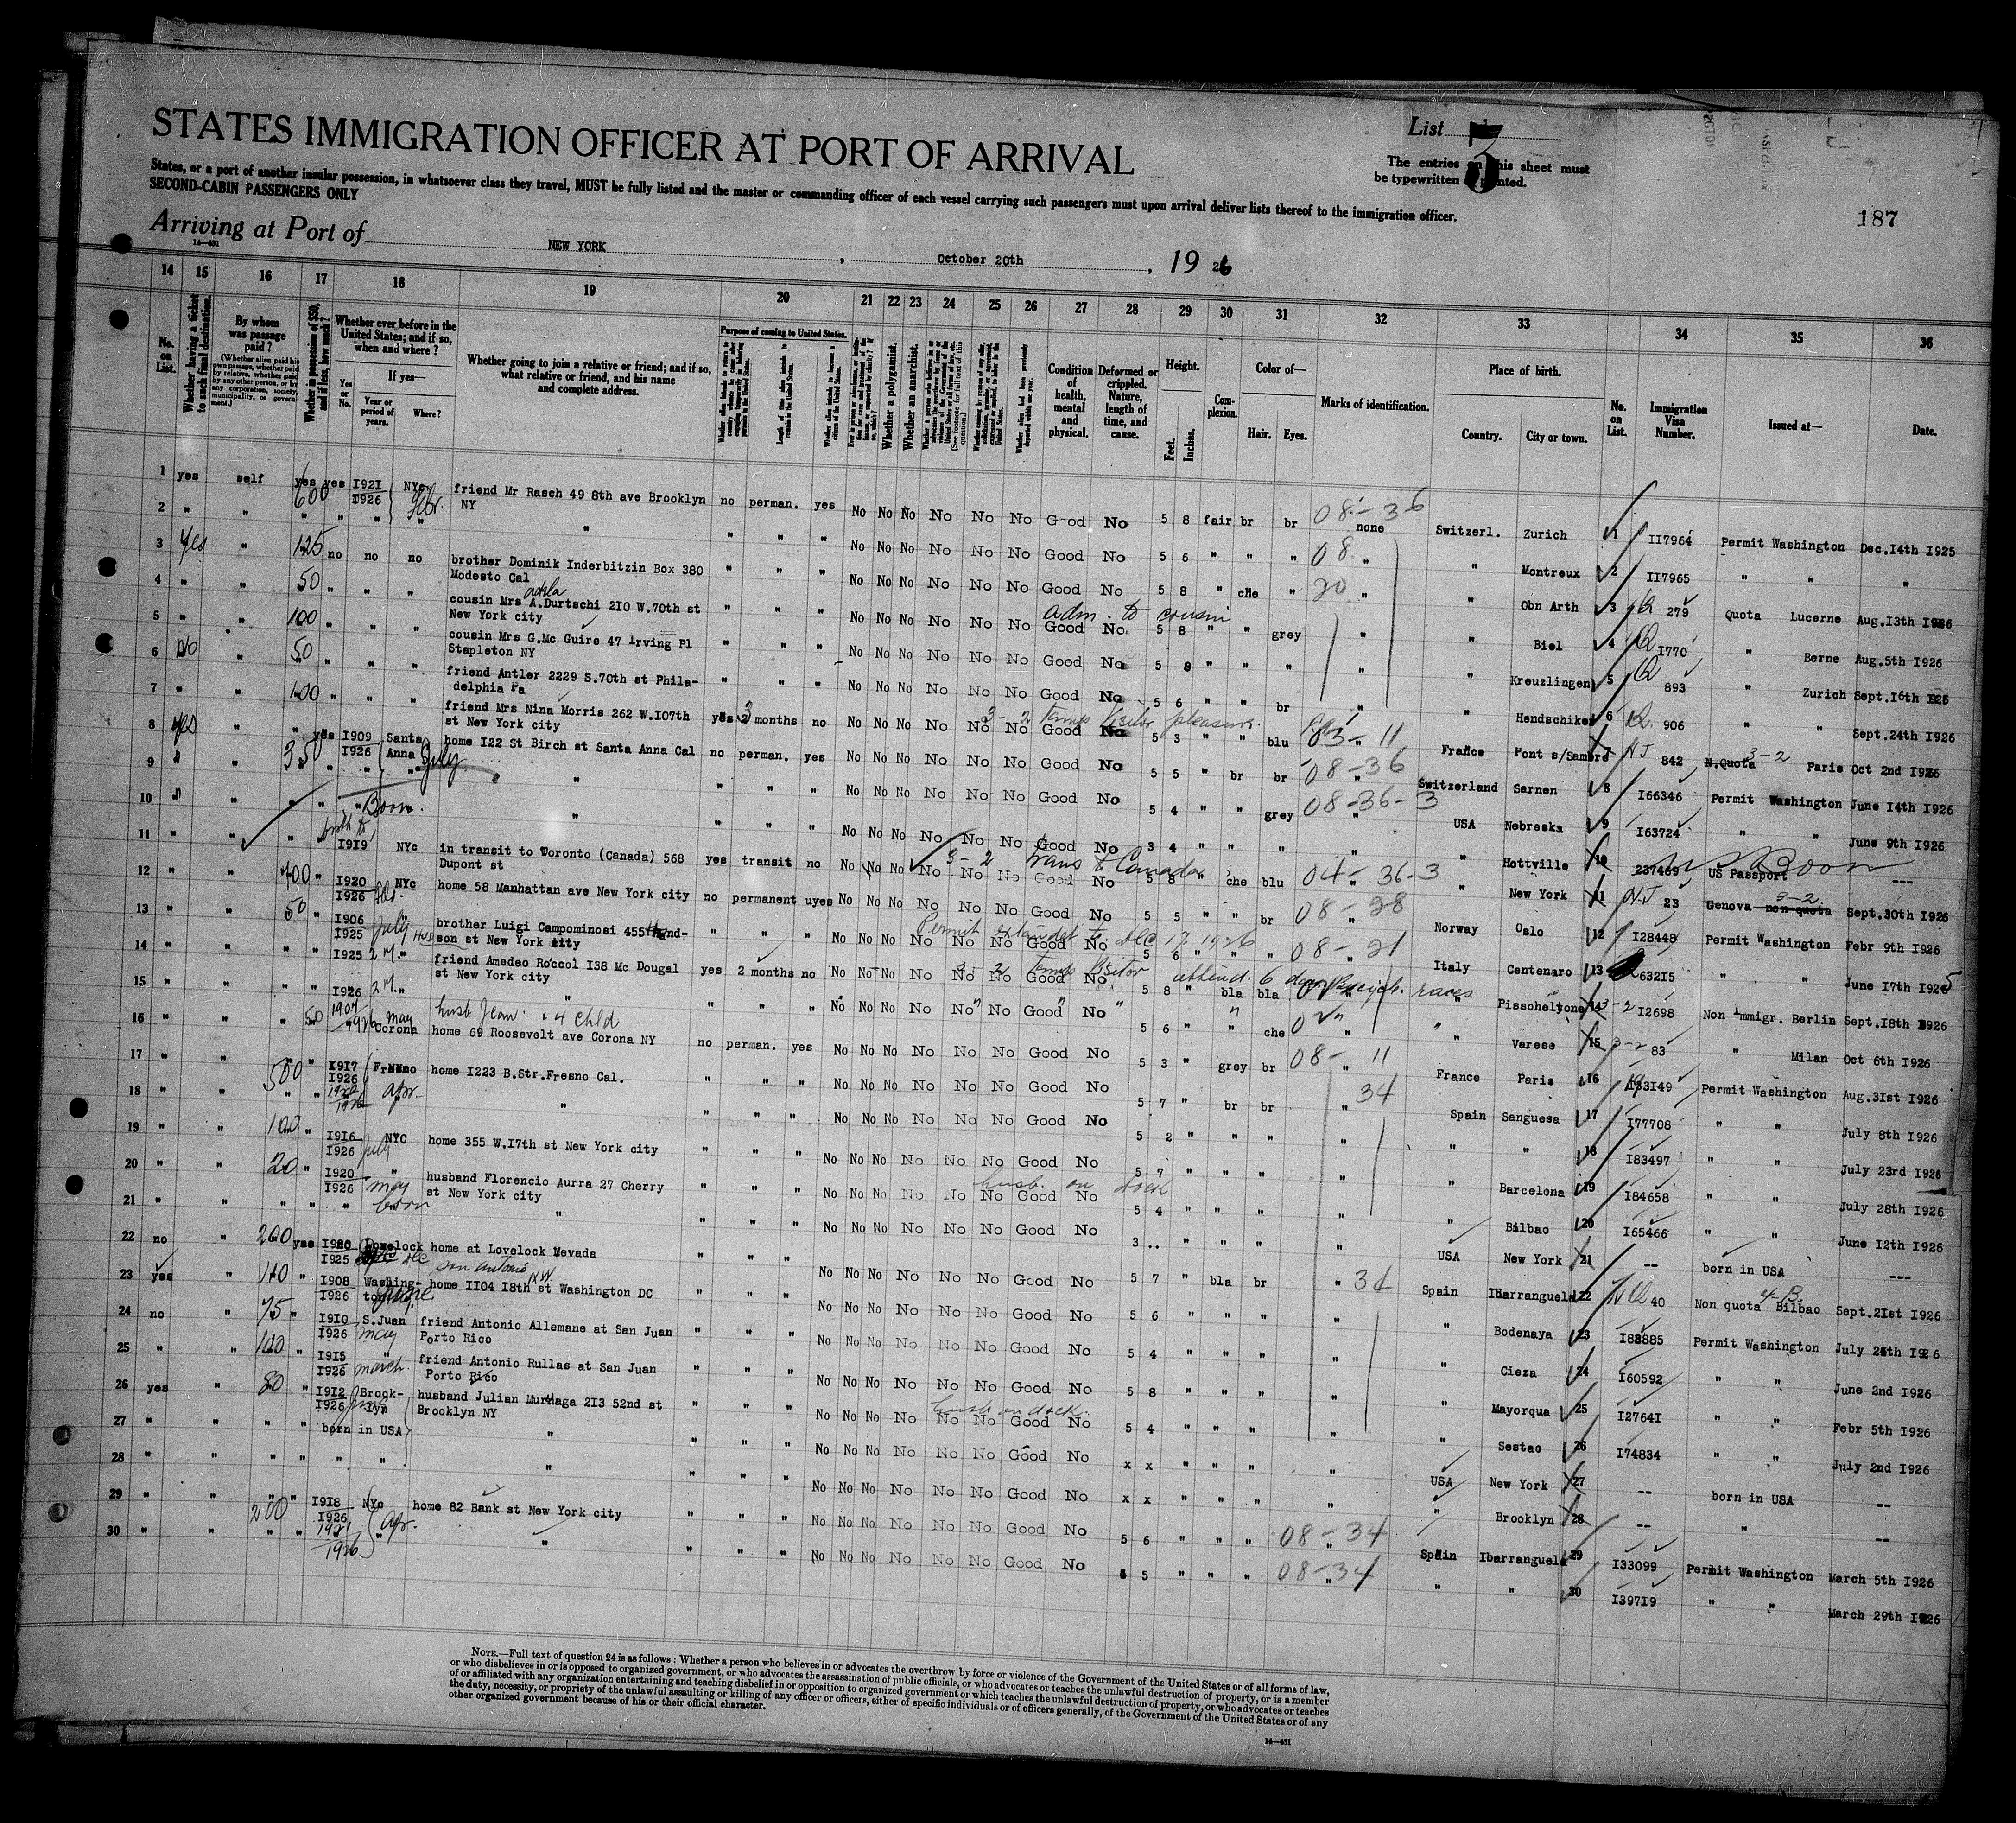 STATES IMMIGRATION OFFICER AT PORT OF ARRIVAL
List 3
The entries on this sheet must
be typewritten or printed.
States, or a port of another insular possession, in whatsoever class they travel, MUST be fully listed and the master or commanding officer of each vessel carrying such passengers must upon arrival deliver lists thereof to the immigration officer.
SECOND-CABIN PASSENGERS ONLY
187
Arriving at Port of NEW YORK, October 20th, 1926
14—431
14 15 16 17 18 19 20 21 22 23 24 25 26 27 28 29 30 31 32 33 34 35 36
No. on List.
Whether having a ticket to such final destination.
By whom was passage paid?
(Whether alien paid his own passage, whether paid by relative, whether paid by any other person, or by any corporation, society, municipality, or government.)
Whether in possession of $50, and if less, how much?
Whether ever before in the United States; and if so, when and where?
Yes or No.
If yes—
Year or period of years.
Where?
Whether going to join a relative or friend; and if so, what relative or friend, and his name and complete address.
Purpose of coming to United States.
Length of time alien intends to remain in the United States.
Whether alien intends to become a citizen of the United States.
Whether a polygamist.
Whether an anarchist.
Condition of health, mental and physical.
Deformed or crippled. Nature, length of time, and cause.
Height.
Feet. Inches.
Complexion.
Color of—
Hair. Eyes.
Marks of identification.
Place of birth.
Country. City or town.
No. on List.
Immigration Visa Number.
Issued at—
Date.
1 yes self yes 600 yes I921 I926 NYc friend Mr Rasch 49 8th ave Brooklyn NY no perman. yes No No No No No No Good No 5 8 fair br br 08-36 none Switzerl. Zurich 1 II7964 Permit Washington Dec.I4th I925
2 " " " " " " " " " " No No No No No No Good No 5 6 " " " 08 " " Montreux 2 II7965 " " "
3 yes " 125 no no no brother Dominik Inderbitzin Box 380 Modesto Cal " " " No No No No No No Good No 5 8 " che " 20 " " Obn Arth 3 279 Quota Lucerne Aug.I3th I926
4 " " 50 " " " cousin Mrs A.Durtschi 2I0 W.70th st New York city " " " No No No No No No adm. to cousin Good No 5 8 " " grey " " Biel 4 I770 " Berne Aug.5th I926
5 " " 100 " " " cousin Mrs G.Mc Guire 47 Irving Pl Stapleton NY " " " No No No No No No Good No 5 8 " " " " " Kreuzlingen 5 893 " Zurich Sept.I6th I926
6 No " 50 " " " friend Antler 2229 S.70th st Philadelphia Pa " " " No No No No No No Good No 5 6 " " br " " Hendschiken 6 906 " " Sept.24th I926
7 " " 100 " " " friend Mrs Nina Morris 262 W.I07th st New York city yes 3 months no No No No No No No 3-2 temp visitor pleasure. Good No 5 3 " " blu 03-11 France Pont s/Sambre 7 842 N.Quota 3-2 Paris Oct 2nd I926
8 yes " 350 yes I909 I926 Santa Anna July home I22 St Birch st Santa Anna Cal no perman. yes No No No No No No Good No 5 5 " br br 08-36 Switzerland Sarnen 8 I66346 Permit Washington June I4th I926
9 " " " " " " " " " " No No No No No No Good No 5 4 " " grey 08-36-3 USA Nebreska 9 I63724 " " June 9th I926
10 " " " " " Born. " " " " No No No No No No Good No 3 4 " " " " " Hottville 10 237469 US Passport Born ---
11 " " " I9I9 NYc in transit to Toronto (Canada) 568 Dupont st yes transit no No No No No No No 3-2 trans to Canada Good No 5 8 " che blu 04-36-3 " New York 11 N.J 23 Genova non quota 3-2 Sept.30th I926
12 " " 400 " I920 I926 NYc home 58 Manhattan ave New York city no permanent yes No No No No No No Good No 5 5 " " br 08-28 Norway Oslo 12 I28448 Permit Washington Febr 9th I926
13 " " 50 " I906 I925 July brother Luigi Campominosi 455 Hudson st New York city " " " No No No No No No Permit extended to Dec 17 1926 Good No 5 6 " " " 08-21 Italy Centenaro 13 632I5 " " June I7th I925
14 " " " " I925 " friend Amedeo Roccol I38 Mc Dougal st New York city yes 2 months no No No No No No No 3-2 temp visitor attend. 6 day Bicycle races Good No 5 8 " bla bla " " Pissoheltone 14 3-2 I2698 Non immigr. Berlin Sept.I8th I926
15 " " " " I926 " " " " " No No No No No No Good No 5 6 " " che " " Varese 15 3-2 83 " Milan Oct 6th I926
16 " " 50 1907 1926 may Corona husb Jean. & 4 chld home 69 Roosevelt ave Corona NY no perman. yes No No No No No No Good No 5 3 " grey br 08-11 France Paris 16 I83I49 Permit Washington Aug.3Ist I926
17 " " 500 " I9I7 I926 Fresno home I223 B.Str.Fresno Cal. " " " No No No No No No Good No 5 7 " br br 34 Spain Sanguesa 17 I77708 " " July 8th I926
18 " " " " 1920 1926 apr. " " " " No No No No No No Good No 5 2 " " " " " " 18 I83497 " " July 23rd I926
19 " " 100 " I9I6 I926 NYC July home 355 W.I7th st New York city " " " No No No No No No Good No 5 7 " " " " " Barcelona 19 I84658 " " July 28th I926
20 " " 20 " I920 I926 " may husband Florencio Aurra 27 Cherry st New York city " " " No No No No No No husb. on dock Good No 5 4 " " " " " Bilbao 20 I65466 " " June I2th I926
21 " " " " " born " " " " No No No No No No Good No 3 .. " " " " USA New York 21 -- born in USA ---
22 no " 200 yes I920 I925 Lovelock Dec home at Lovelock Nevada " " " No No No No No No Good No 5 7 " bla br " 34 Spain Ibarranguela 22 40 Non quota 4-B. Bilbao Sept.2Ist I926
23 yes " 100 " I908 I926 Washington June san antonio home II04 I8th st N.W. Washington DC " " " No No No No No No Good No 5 6 " " " " " Bodenaya 23 I83885 Permit Washington July 26th I926
24 no " 75 " I9I0 I926 S.Juan may friend Antonio Allemane at San Juan Porto Rico " " " No No No No No No Good No 5 4 " " " " " Cieza 24 I60592 " " June 2nd I926
25 " " 100 " I9I5 I926 " march. friend Antonio Rullas at San Juan Porto Rico " " " No No No No No No Good No 5 8 " " " " " Mayorqua 25 I2764I " " Febr 5th I926
26 yes " 80 " I9I2 I926 Brooklyn husband Julian Muruaga 2I3 52nd st Brooklyn NY " " " No No No No No No husb on dock. Good No 5 4 " " " " " Sestao 26 I74834 " " July 2nd I926
27 " " " " born in USA " " " " No No No No No No Good No x x " " " " USA New York 27 -- born in USA --
28 " " " " " " " " " " No No No No No No Good No x x " " " " " Brooklyn 28 -- " --
29 " " 200 " I9I8 I926 NYc apr. home 82 Bank st New York city " " " No No No No No No Good No 5 6 " " " 08-34 Spain Ibarranguela 29 I33099 Permit Washington March 5th I926
30 " " " " 1921 1926 " " " " " No No No No No No Good No 5 5 " " " 08-34 " " 30 I397I9 " " March 29th I926
NOTE.—Full text of question 24 is as follows: Whether a person who believes in or advocates the overthrow by force or violence of the Government of the United States or of all forms of law,
or who disbelieves in or is opposed to organized government, or who advocates the assassination of public officials, or who advocates or teaches the unlawful destruction of property, or is a member
of or affiliated with any organization entertaining and teaching disbelief in or opposition to organized government or which teaches the unlawful destruction of property, or who advocates or teaches
the duty, necessity, or propriety of the unlawful assaulting or killing of any officer or officers, either of specific individuals or of officers generally, of the Government of the United States or of any
other organized government because of his or their official character.
14—431